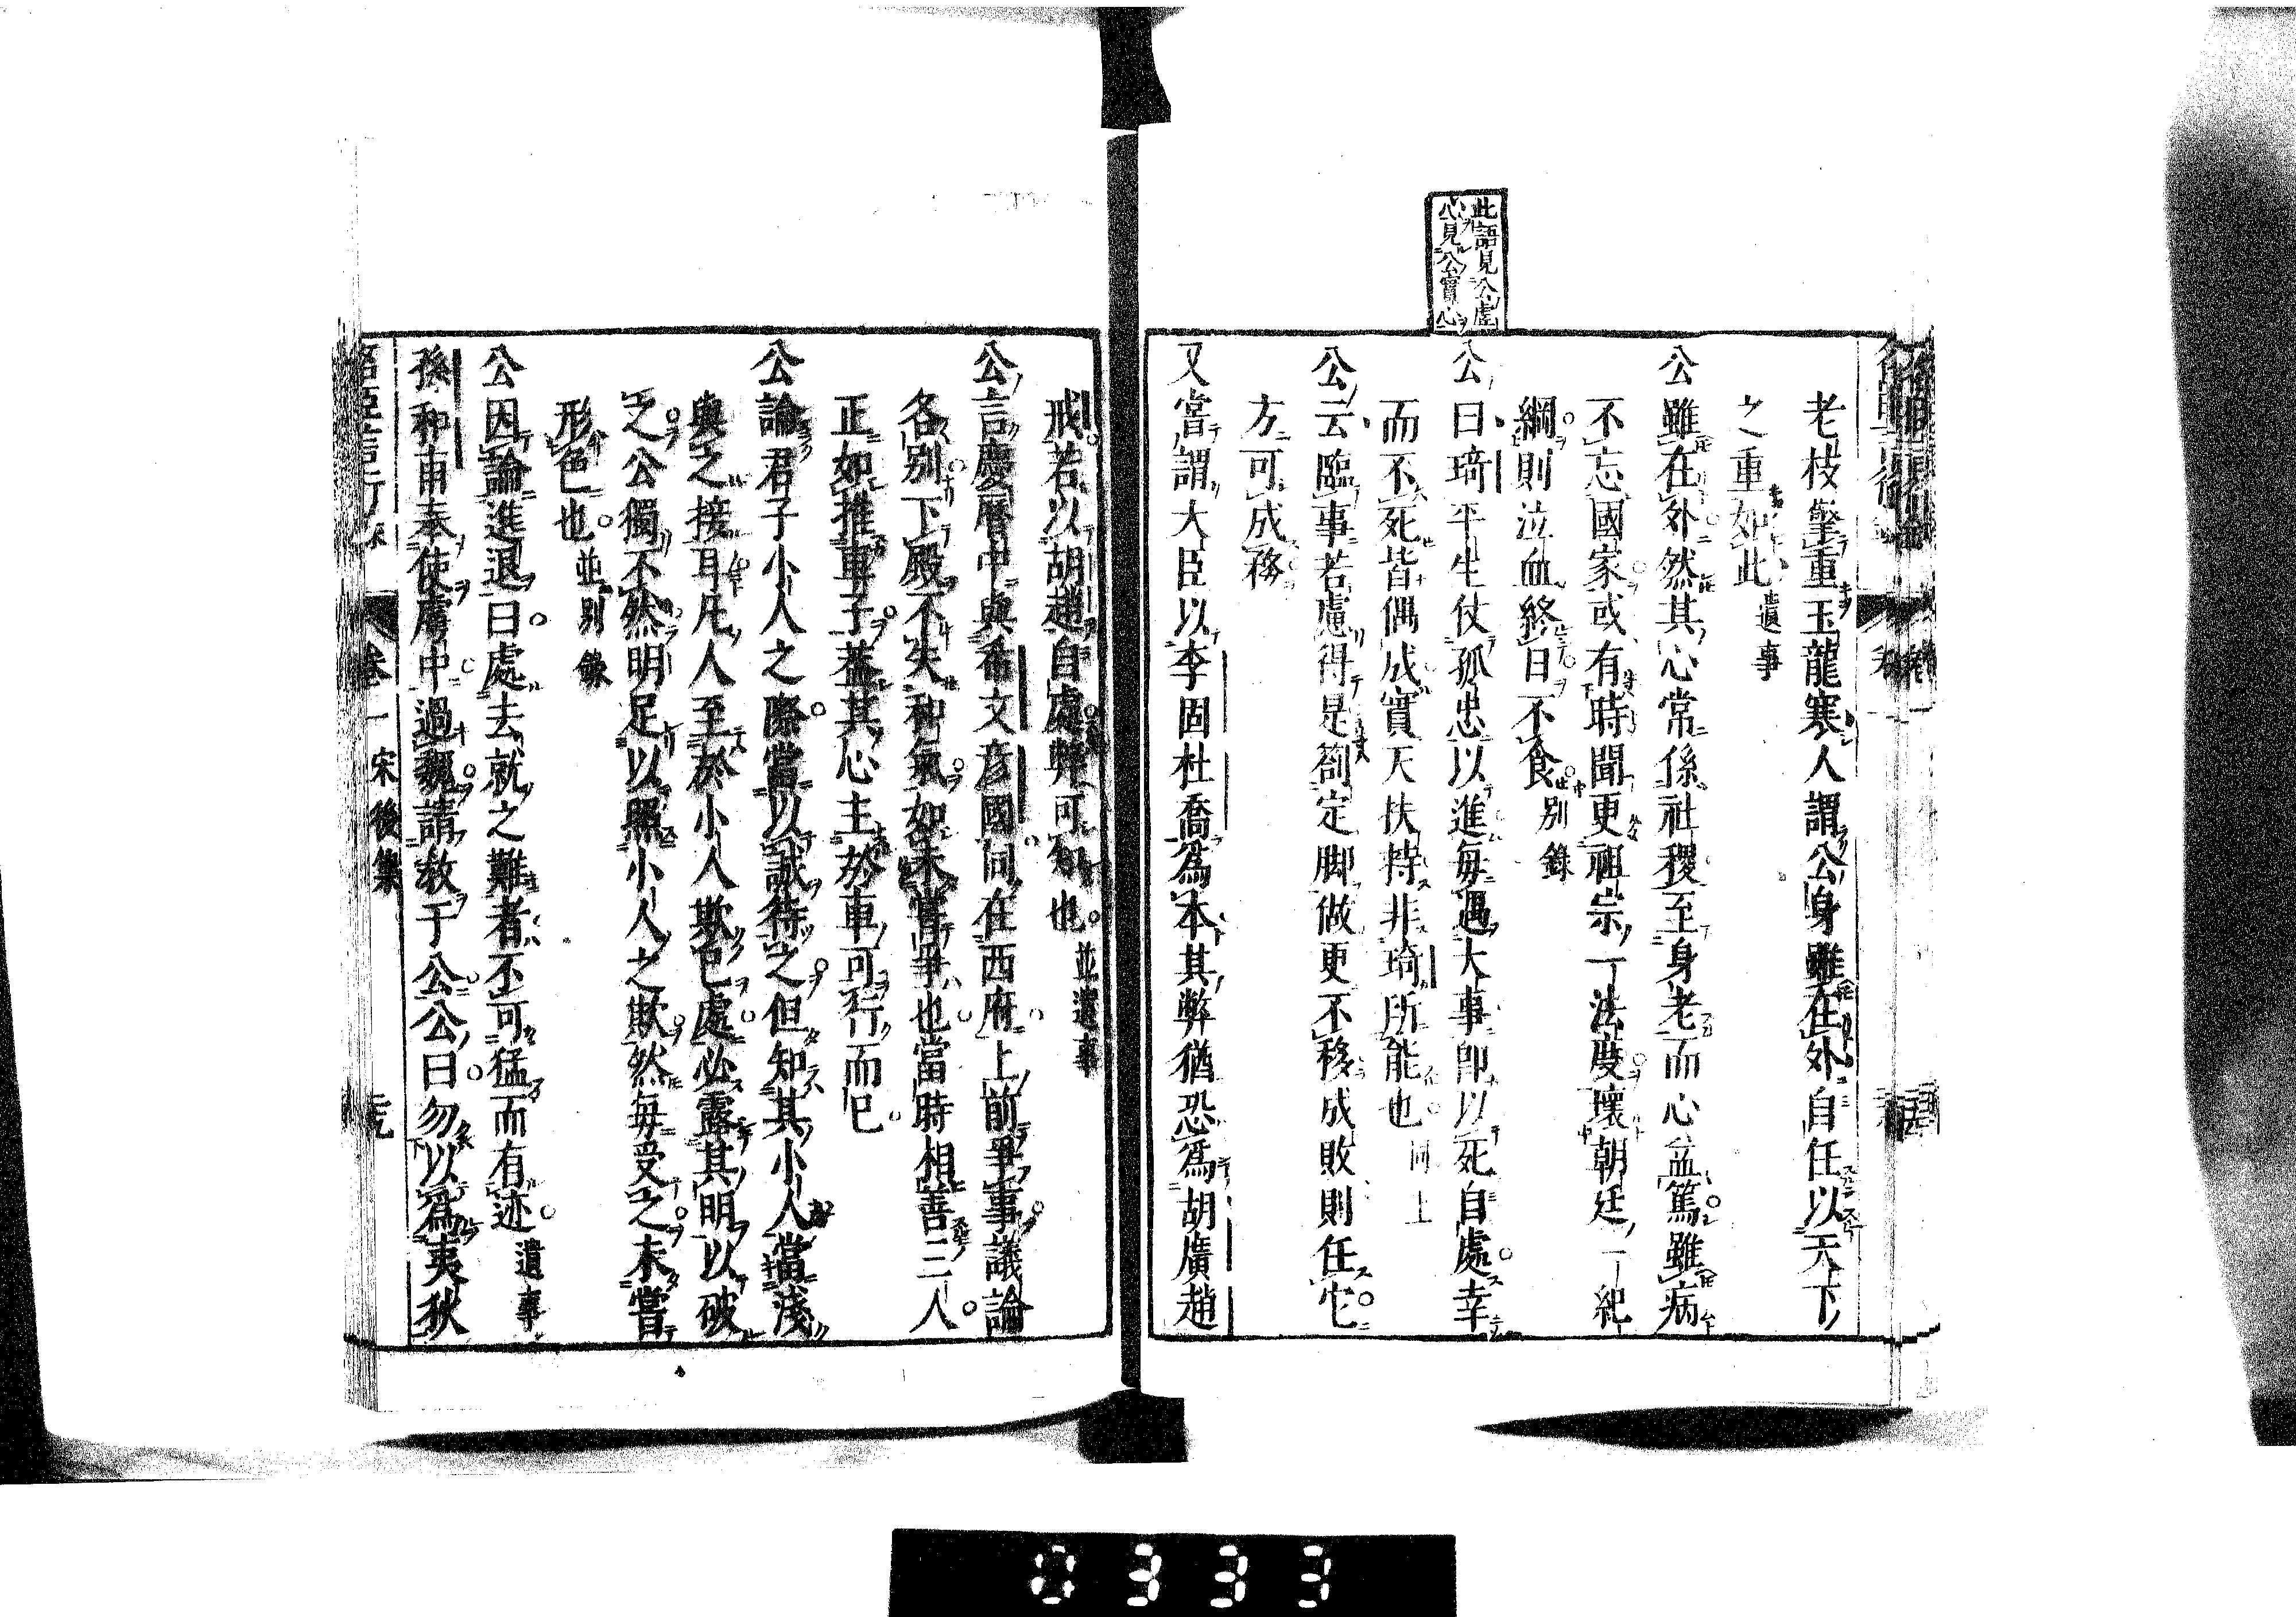 此語見公虛
心見公實心
老枝擎重玉龍寒人謂公身雖在外自任以天下
之重如此遺事
公雖在外然其心常係社稷至身老而心益篤雖病
不忘國家或有時聞更祖宗一法度壞朝廷一紀
綱則泣血終日不食別錄
公曰琦平生仗孤忠以進每遇大事卽以死自處幸
而不死皆偶成實天扶持非琦所能也同上
公云臨事若慮得是劄定脚做更不移成敗則任它
方可成務
又嘗謂大臣以李固杜喬爲本其弊猶恐爲胡廣趙
戒若以胡趙自處弊可知也並遺事
公言慶曆中與希文彥國同在西府上前爭事議論
各別下殿不失和氣如未嘗爭也當時相善三人
正如推車子蓋其心主於車可行而已
公論君子小人之際當以誠待之但知其小人當淺
與之接耳凡人至於小人欺已處必露其明以破
之公獨不然明足以照小人之欺然每受之未嘗
形色也並別錄
公因論進退曰處去就之難者不可猛而有迹遺事
孫和甫奉使虜中過魏請敎于公公曰勿以爲夷狄
卷一 宋後集
0333